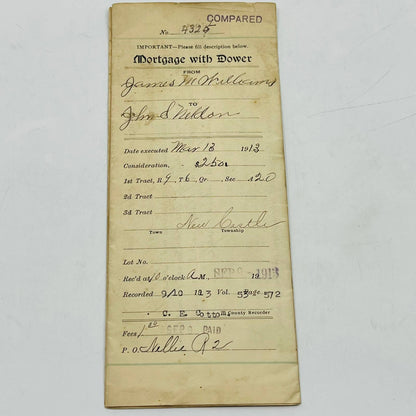 COMPARED
No. 4325
IMPORTANT—Please fill description below.
Mortgage with Dower
FROM
James M Williams
TO
John S Neldon
Date executed Mar 13 1913
Consideration - $250
1st Tract, R 9 T 6 Qr. Sec A 20
2d Tract
3d Tract
New Castle
Town Township
Lot No.
Rec'd at 10 o'clock A M., SEP 9 - 1913
Recorded 9/10 1913 Vol. 53 Page 572
C. E. Cotton County Recorder
Fees 1.00 SEP 9 PAID
P. O. Nellie R 2